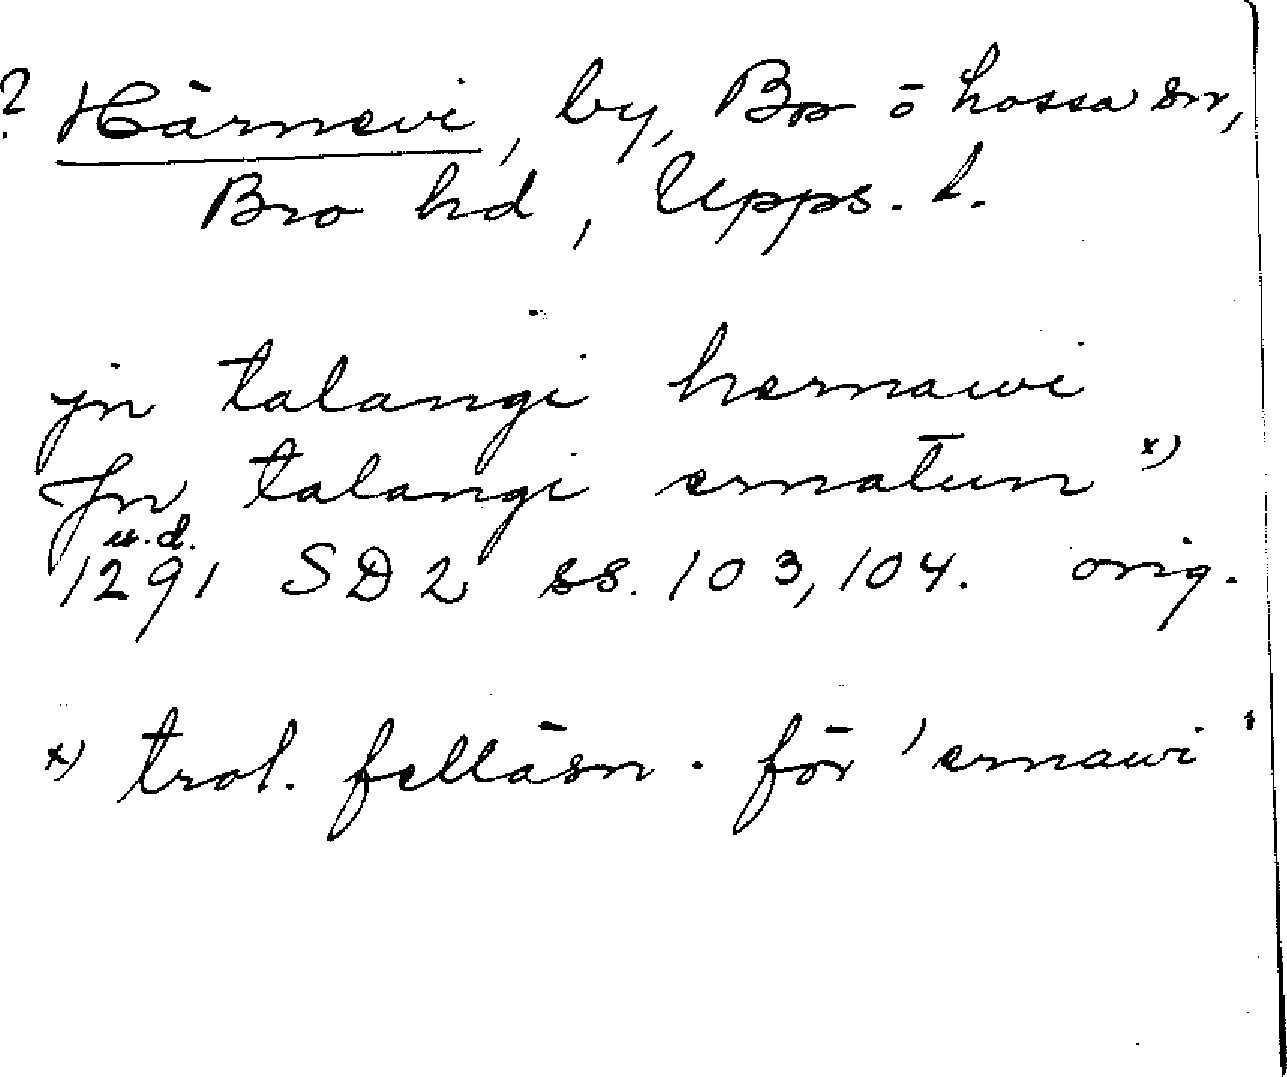 ? Härnevi, by, Bro o Lossa sn,
Bro hd, Upps. l.
jn talangi hernawi
Jn talangi ernatun x)
u.d.
1291 SD 2 ss. 103, 104. orig.
x) trol. felläsn. för 'ernawi'